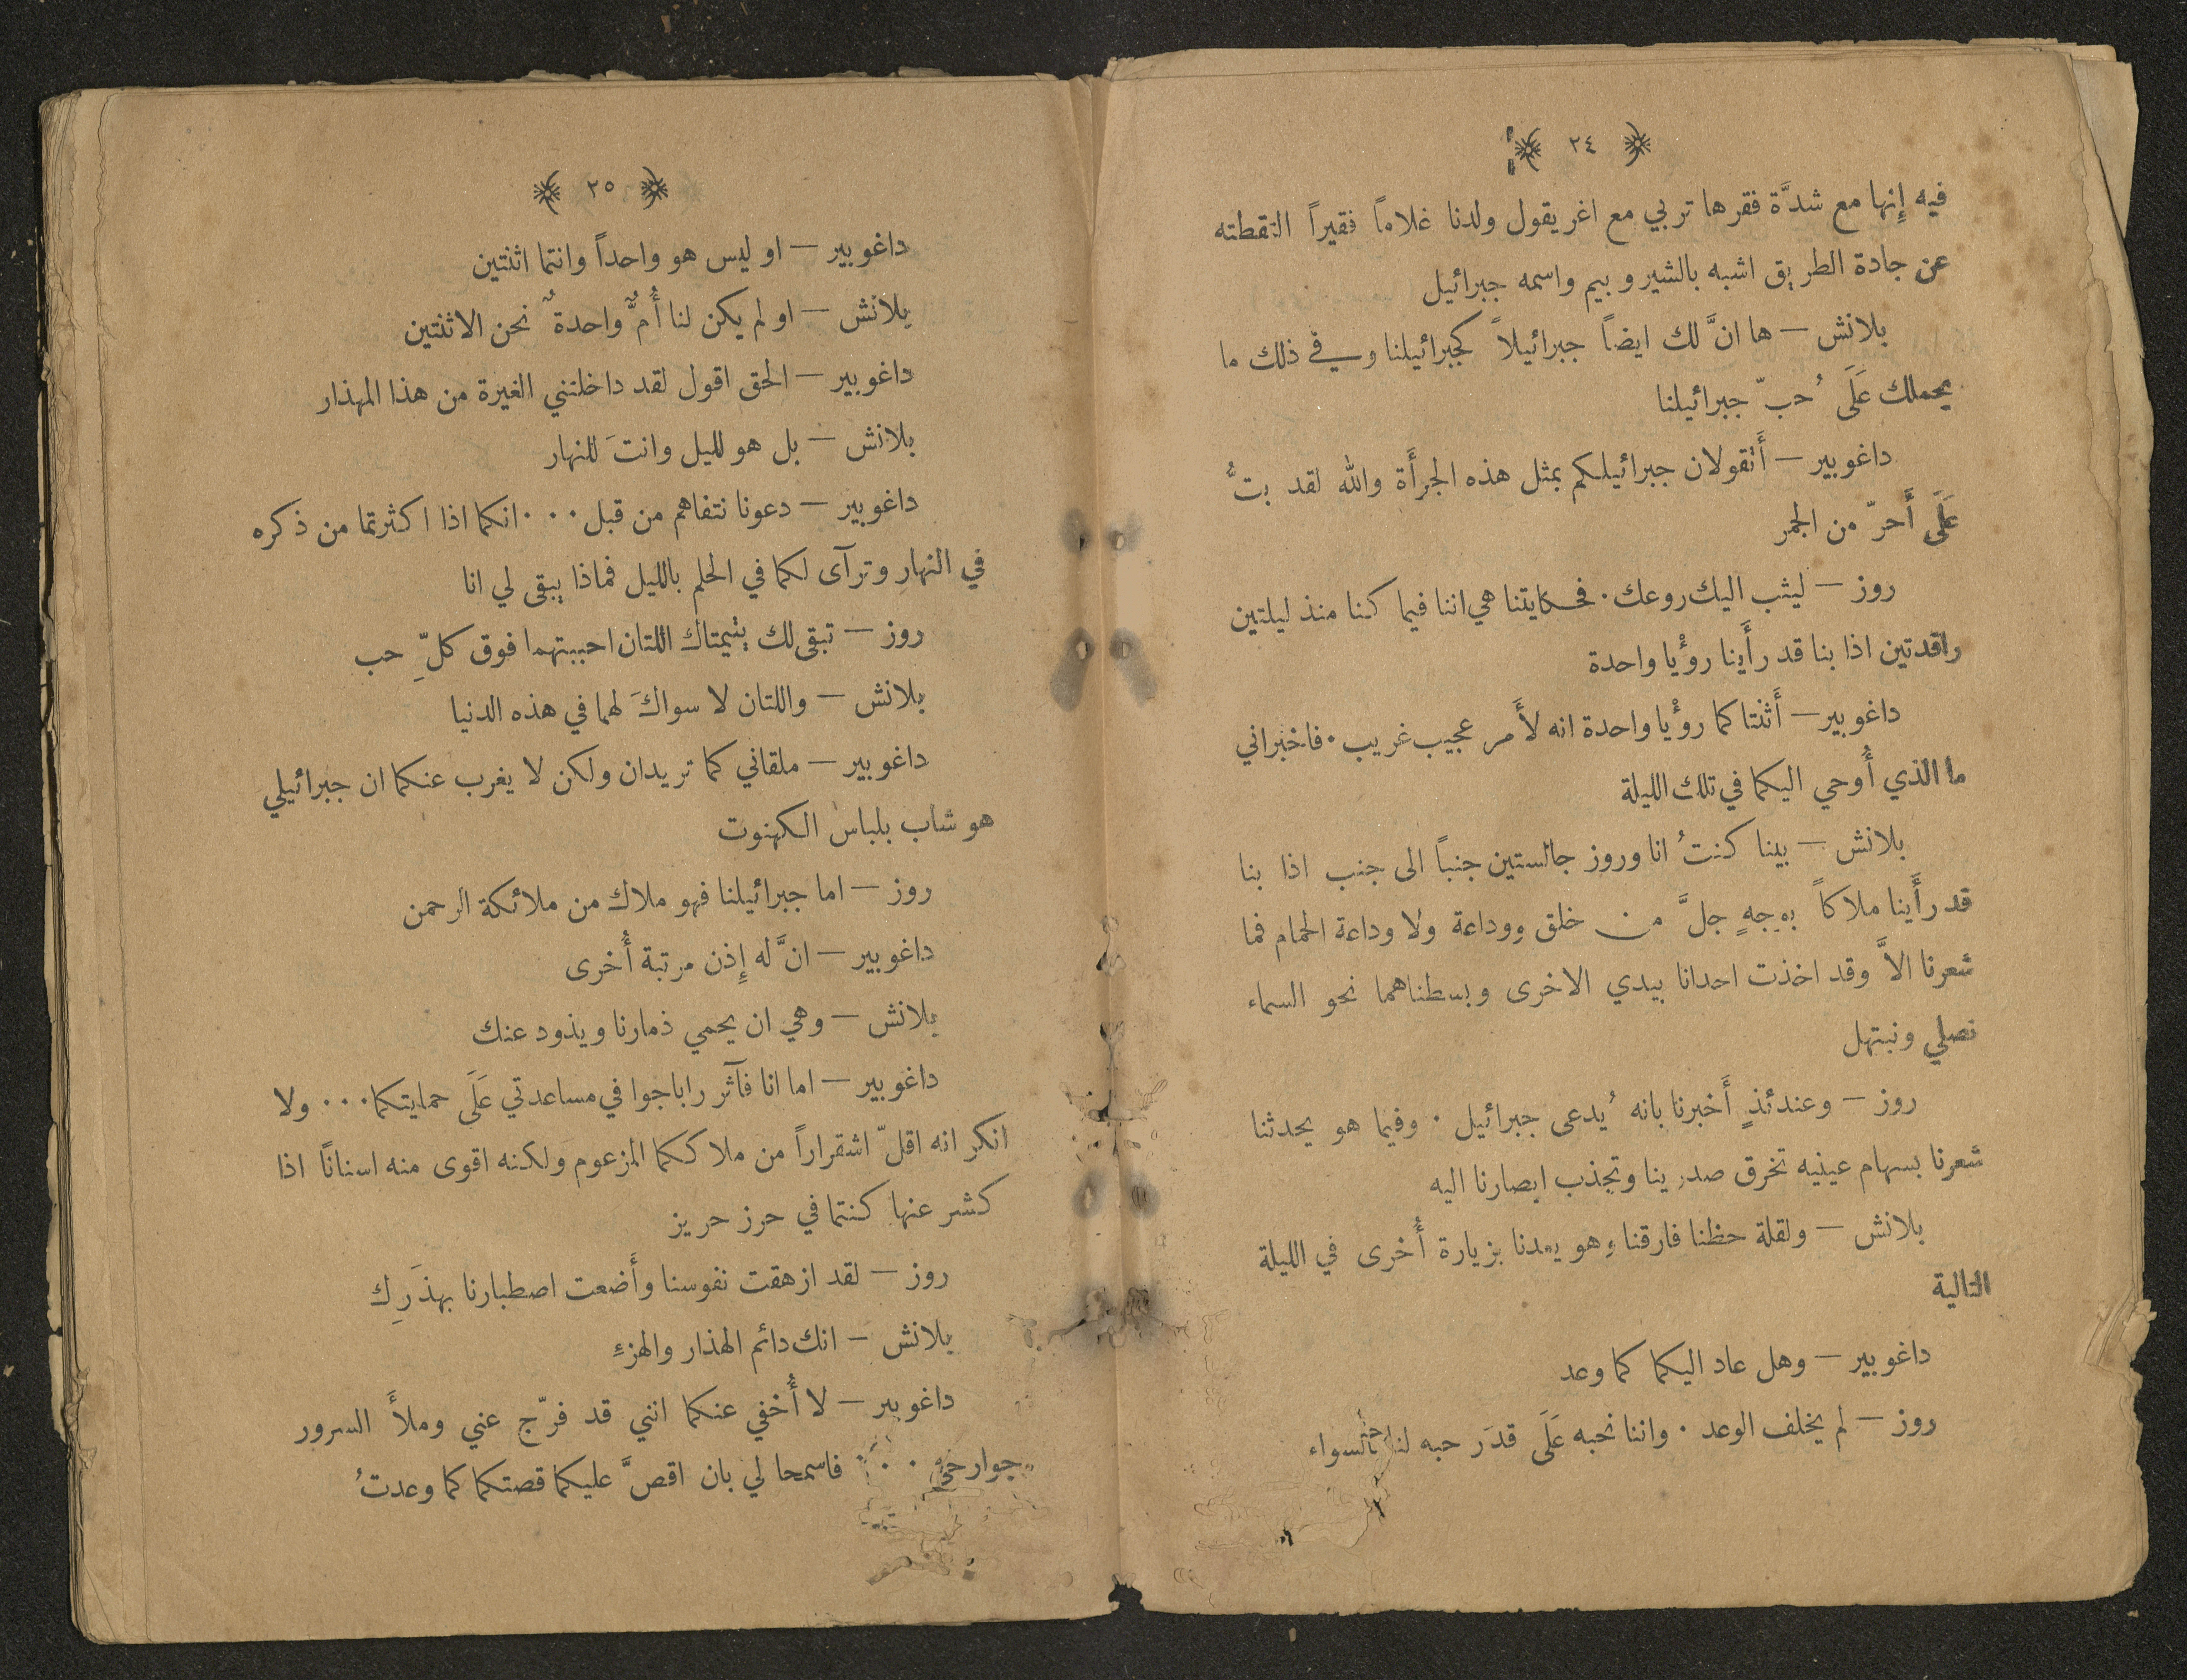 ٢٤
فيه إنها مع شدَّة فقرها تربي مع اغريقول ولدنا غلاماً فقيراً التقطته
عن جادة الطريق اشبه بالشيروبيم واسمه جبرائيل
بلانش — ها انَّ لك ايضاً جبرائيلاً كجبرائيلنا وفي ذلك ما
يحملك عَلَى حُبّ جبرائيلنا
داغوبير — أَتقولان جبرائيلكم بمثل هذه الجرأَة والله لقد بتُّ
عَلَى أَحرّ من الجمر
روز — ليثب اليك روعك . فحكايتنا هي اننا فيما كنا منذ ليلتين
راقدتين اذا بنا قد رأَينا روْيا واحدة
داغوبير — أَثنتاكما روْيا واحدة انه لأَمر عجيب غريب . فاخبراني
ما الذي أُوحي اليكما في تلك الليلة
بلانش — بينا كنتُ انا وروز جالستين جنباً الى جنب اذا بنا
قد رأَينا ملاكاً بوجهٍ جلَّ من خلق ووداعة ولا وداعة الحمام فما
شعرنا الاَّ وقد اخذت احدانا بيدي الاخرى وبسطناهما نحو السماء
نصلي ونبتهل
روز — وعندئذٍ أَخبرنا بانه يُدعى جبرائيل . وفيما هو يحدثنا
شعرنا بسهام عينيه تخرق صدرينا وتجذب ابصارنا اليه
بلانش — ولقلة حظنا فارقنا وهو يعدنا بزيارة أُخرى في الليلة
التالية
داغوبير — وهل عاد اليكما كما وعد
روز — لم يخلف الوعد . واننا نحبه عَلَى قدَر حبه لنا بالسواء
٢٥
داغوبير — او ليس هو واحداً وانتما اثنتين
بلانش — او لم يكن لنا أُمٌّ واحدةٌ نحن الاثنتين
داغوبير — الحق اقول لقد داخلتني الغيرة من هذا المهذار
بلانش — بل هو لليل وانتَ للنهار
داغوبير — دعونا نتفاهم من قبل . . . انكما اذا اكثرتما من ذكره
في النهارِ وترآى لكما في الحلم بالليل فماذا يبقى لي انا
روز — تبقى لك يتيمتاك اللتان احببتهما فوق كلِّ حب
بلانش — واللتان لا سواكَ لهما في هذه الدنيا
داغوبير — ملقاني كما تريدان ولكن لا يغرب عنكما ان جبرائيلي
هو شاب بلباس الكهنوت
روز — اما جبرائيلنا فهو ملاك من ملائكة الرحمن
داغوبير — انَّ له إِذن مرتبة أُخرى
بلانش — وهي ان يحمي ذمارنا ويذود عنك
داغوبير — اما انا فآثر راباجوا في مساعدتي عَلَى حمايتكما . . . ولا
انكر انه اقلّ اشقراراً من ملاككما المزعوم ولكنه اقوى منه اسنانًا اذا
كشر عنها كنتما في حرز حريز
روز — لقد ازهقت نفوسنا وأَضعت اصطبارنا بهذَرِك
بلانش — انك دائم الهذار والهزءِ
داغوبير — لا أُخفي عنكما انني قد فرّج عني وملأَ السرور
جوارحي . . . فاسمحا لي بان اقصَّ عليكما قصتكما كما وعدتُ